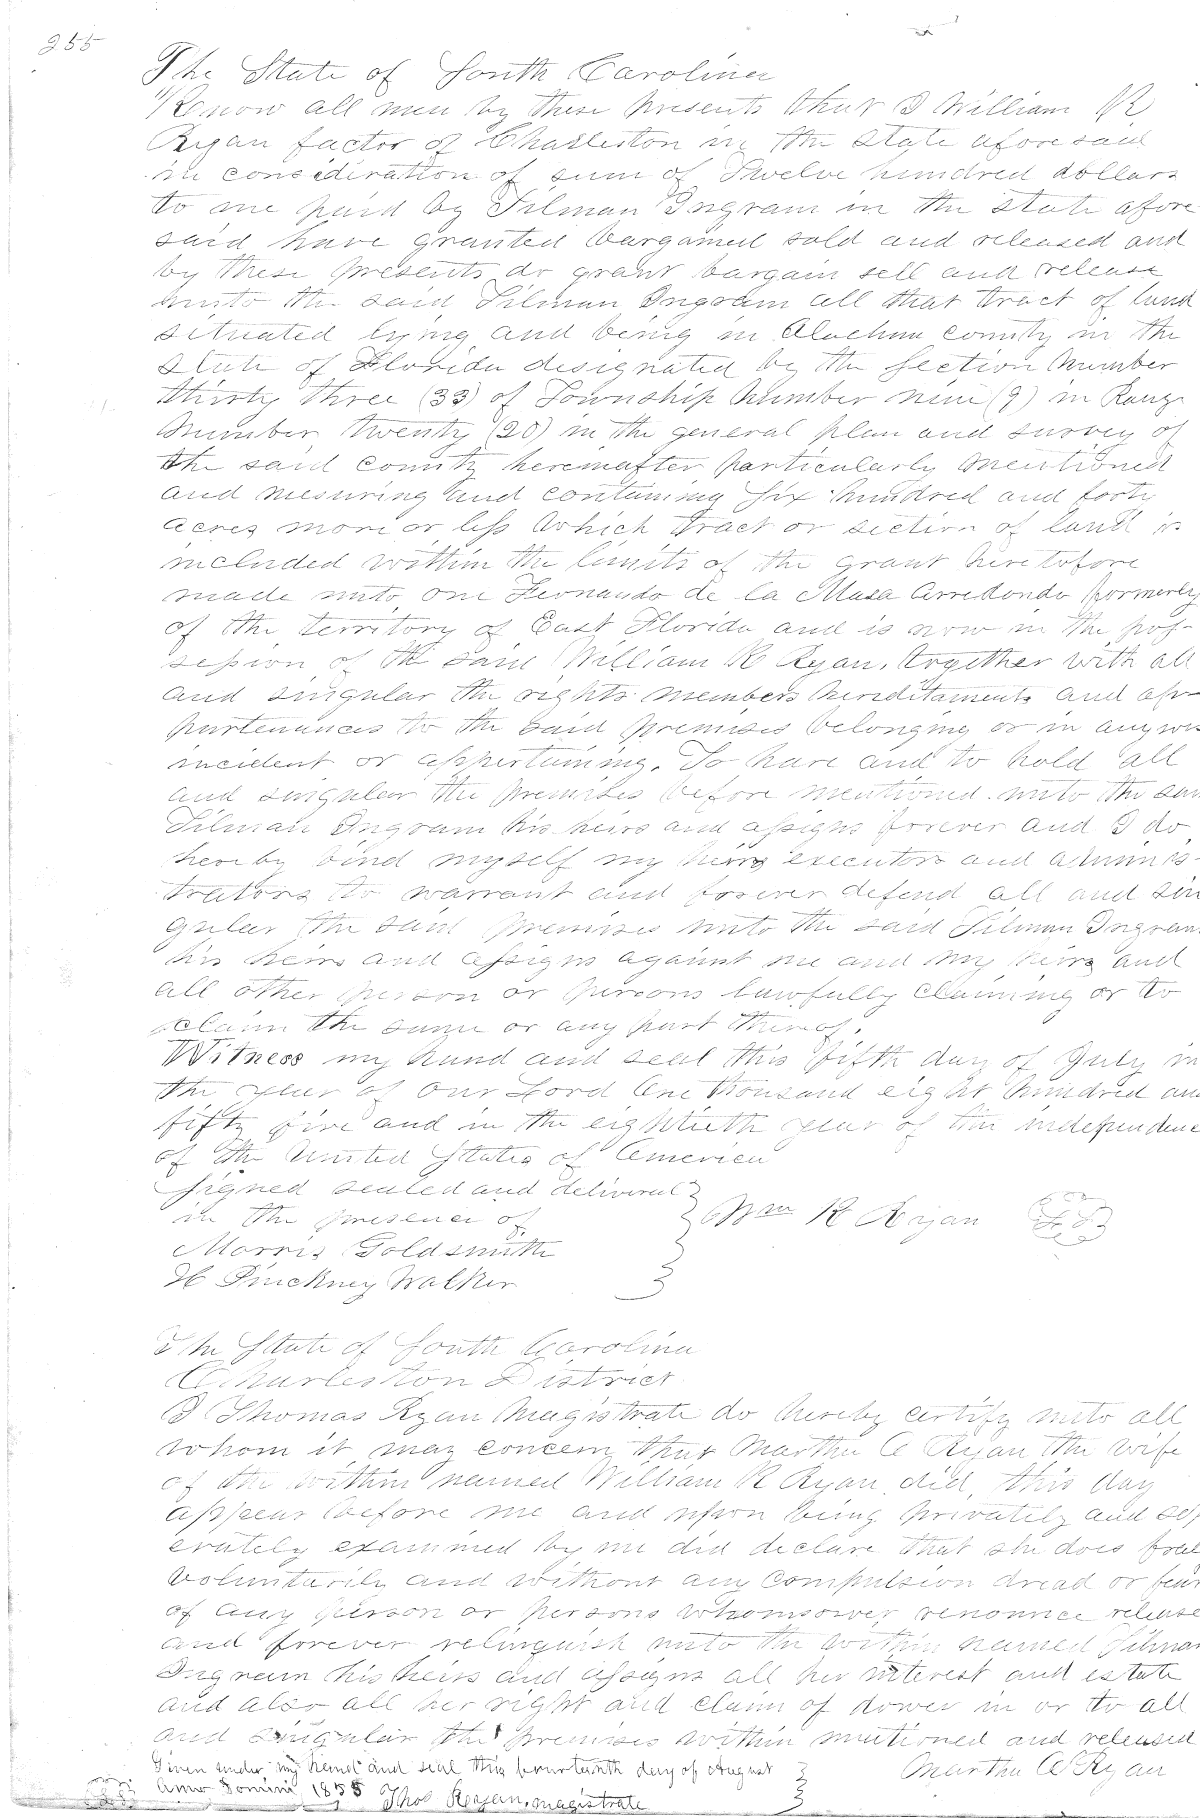 255
The State of South Carolina
Know all men by these presents that I William R
Ryan factor of Charleston in the state afore said
in concideration of sum of Twelve hundred dollars
to me paid by Tilman Ingram in the state afore
said have granted bargained sold and released and
by these presents do grant bargain sell and release
unto the said Tilman Ingram all that tract of land
situated lying and being in Alachua county in the
state of Florida designated by the Section Number
thirty three (33) of Township Number nine (9) in Range
Number twenty (20) in the general plan and survey of
the said county hereinafter particularly mentioned
and mesuring and containing Six hundred and forty
acres more or less which tract or section of land is
included within the limits of the grant heretofore
made unto one Fernando de la Masa Arredondo formerly
of the territory of East Florida and is now in the pos-
session of the said William R Ryan, together with all
and singular the rights members hereditaments and ap-
purtenances to the said premises belonging or in anywis
incident or appertaining. To have and to hold all
and singular the premises before mentioned unto the sai
Tilman Ingram his heirs and assigns forever and I do
hereby bind myself my heirs executors and adminis-
trators to warrant and forever defend all and sin
gular the said premises unto the said Tilman Ingram
his heirs and assigns against me and my heirs and
all other person or persons lawfully claiming or to
claim the same or any part thereof.
Witness my hand and seal this fifth day of July in
the year of our Lord One thousand eight hundred and
fifty five and in the eightieth year of the independence
of the United States of America
Signed sealed and delivered
in the presence of
Wm R Ryan
L S
Morris Goldsmith
H Pinckney Walker
The State of South Carolina
Charleston District
I Thomas Ryan Magistrate do hereby certify unto all
whom it may concern that Martha C Ryan the wife
of the within named William R Ryan did, this day
appear before me and upon being privately and sep
erately examined by me did declare that she does freel
voluntarily and without any compulsion dread or fear
of any person or persons whomsoever renounce release
and forever relinquish unto the within named Tilman
Ingram his heirs and assigns all her interest and estate
and also all her right and claim of dower in or to all
and singular the premises within mentioned and released
Given under my hand and seal this fourteenth day of August
Martha C Ryan
Anno Domini 1855 Thos Ryan, magistrate